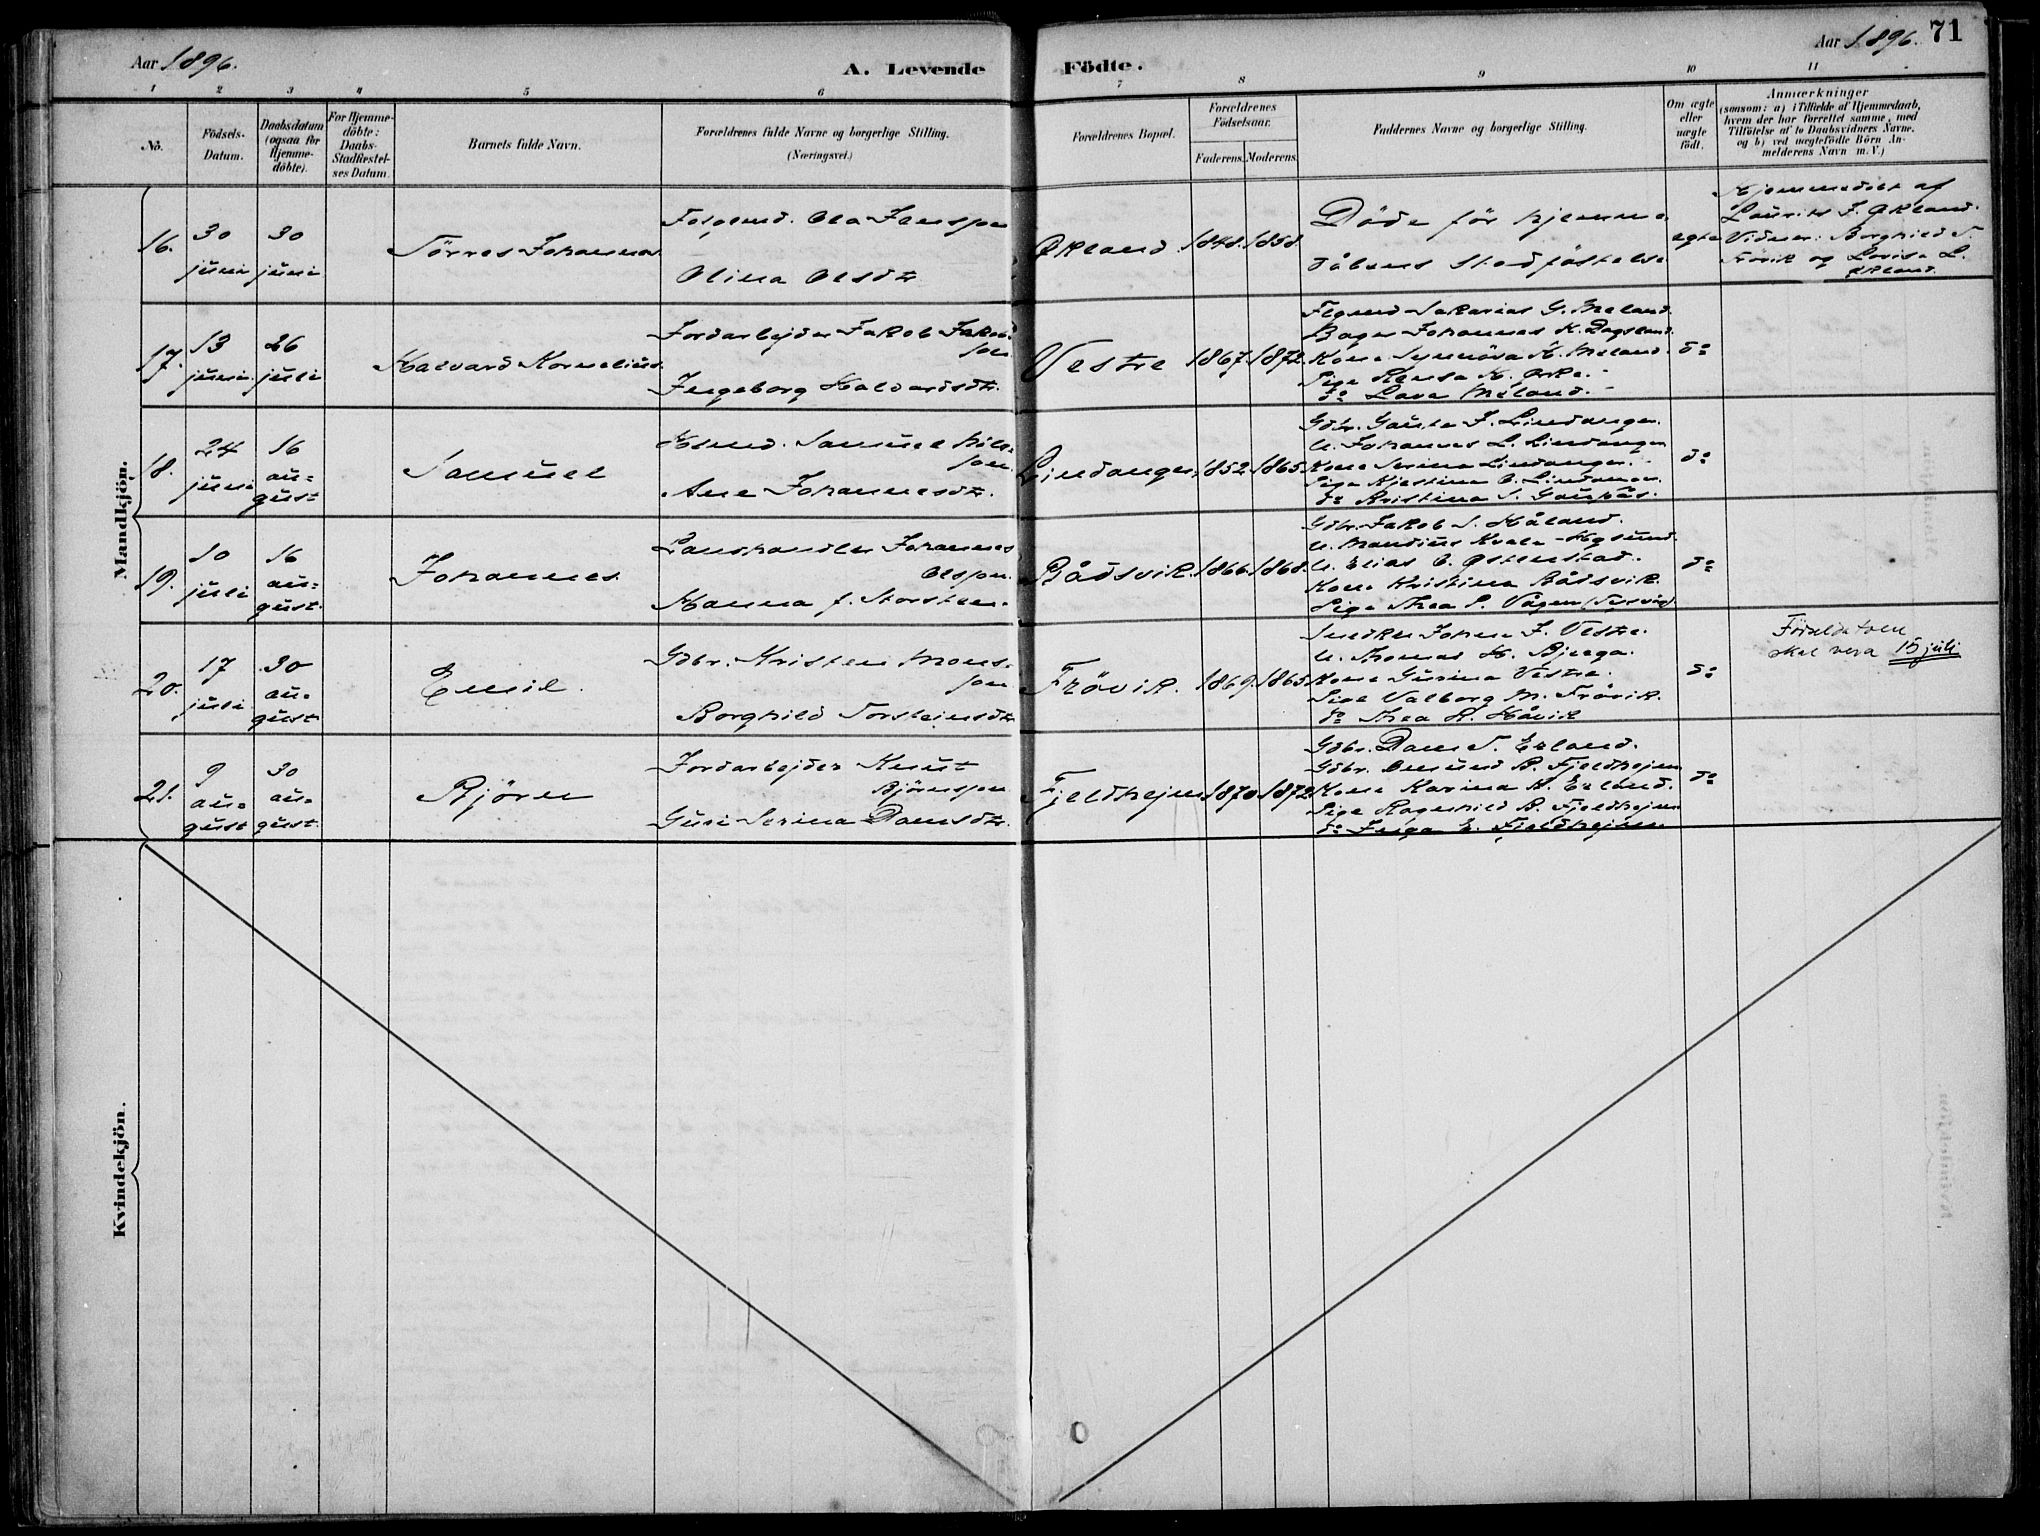 Aar 1896.
A. Levende Födte.
Aar 1896.
71
1 2 3 4 5 6 7 8 9 10 11
No.
Födsels-
Datum.
Daabsdatum
(ogsaa for
Hjemme-
döbte).
For Hjemme-
döbte:
Daabs-
Stadfæstel-
ses Datum.
Barnets fulde Navn.
Forældrenes fulde Navne og borgerlige Stilling.
(Næringsvei.)
Forældrenes Bopæl.
Forældrenes
Födselsaar.
Faderens.
Moderens.
Faddernes Navne og borgerlige Stilling.
Om ægte
eller
uægte
födt.
Anmærkninger
(saasom: a) i Tilfælde af Hjemmedaab,
hvem der har forrettet samme, med
Tilföielse af to Daabsvidners Navne,
og b) ved uægtefödte Börn An-
melderens Navn m. V.)
Mandkjön.
16.
30
juni
30
juni
Törres Johannes
Ola Jensson
Olina Olsdtr
Økland
1848.
1858.
Döde för hjemme
dåbens Stadfæstelse
egte
Hjemmedöbt af
Laurits J. Økland.
Vidner: Borghild T.
Frövik og Lovise L.
Økland.
17.
13
juni
26
juli
Halvard Kornelius
Jordarbejder Jakob Jakobs
son
Ingeborg Halvardsdtr.
Vestre
1867.
1872.
Sakarias G. Meland.
Johannes K. Dagsland.
Kone Synnöva H. Meland.
Pige
do Lava Meland.
do
18.
24
juni
16
au=
gust
Samuel
Samuel Nils
son.
Ane Johannesdtr.
Lindanger.
1852.
1865.
Gdbr. Gaute J. Lindanger.
U. Johannes L. Lindanger
Kone Serina Lindanger.
Pige
do Kristina S. Gaupås.
do
19.
10
juli
16
au=
gust.
Johannes
Landhandler Johannes
Olsson.
Hanna f. Storsteen.
Bådsvik.
1866.
1868.
Gdbr. Jakob S. Håland.
U.
U. Elias E. Østenstad.
Kone Kristina Bådsvik.
Pige Thea S. Vågen (Tysvær)
do
20.
17
juli
30
au=
gust
Emil.
Gdbr. Kristen Mons=
son
Borghild Torsteinsdtr
Frövik.
1869.
1865.
Snedker Johan J. Vestre.
U. Thomas H. Bjerga.
Kone Gurina Vestre.
Pige Valborg M. Frövik.
do Thea K. Håvik
do
Föreldatoen
skal vera 15 juli
21.
9
au=
gust
30
au=
gust.
Björn
Jordarbejder Knut
Björnsson
Guri Serina Damsdtr.
Fjeldhejm
1870.
1872.
Gdbr. Dam T. Erland.
Gdbr. Omund B. Fjeldhejm
Kone Karina K. Erland.
Pige Ragnhild B. Fjeldhejm
do Inga E. Fjeldhejm.
do
Kvindekjön.